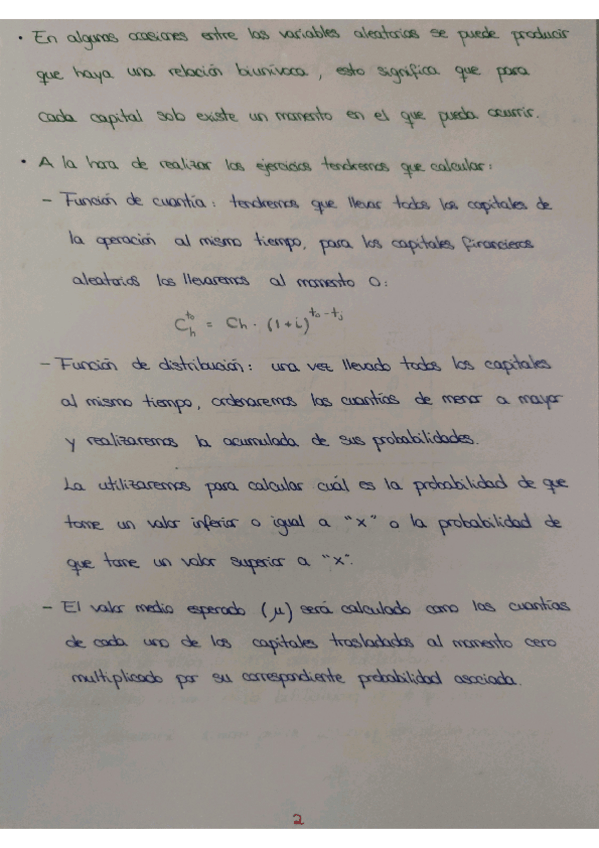 • En algunas ocasiones entre las variables aleatorias se puede producir
que haya una relación biunívoca, esto significa que para
cada capital solo existe un momento en el que pueda ocurrir.
• A la hora de realizar los ejercicios tendremos que calcular:
- Función de cuantía: tendremos que llevar todos los capitales de
la operación al mismo tiempo, para los capitales financieros
aleatorios los llevaremos al momento 0:
C_h^{t_0} = Ch · (1+i)^{t_0 - t_j}
- Función de distribución: una vez llevado todos los capitales
al mismo tiempo, ordenaremos las cuantías de menor a mayor
y realizaremos la acumulada de sus probabilidades.
La utilizaremos para calcular cuál es la probabilidad de que
tome un valor inferior o igual a "x" o la probabilidad de
que tome un valor superior a "x".
- El valor medio esperado (μ) será calculado como las cuantías
de cada uno de los capitales trasladados al momento cero
multiplicado por su correspondiente probabilidad asociada.
2